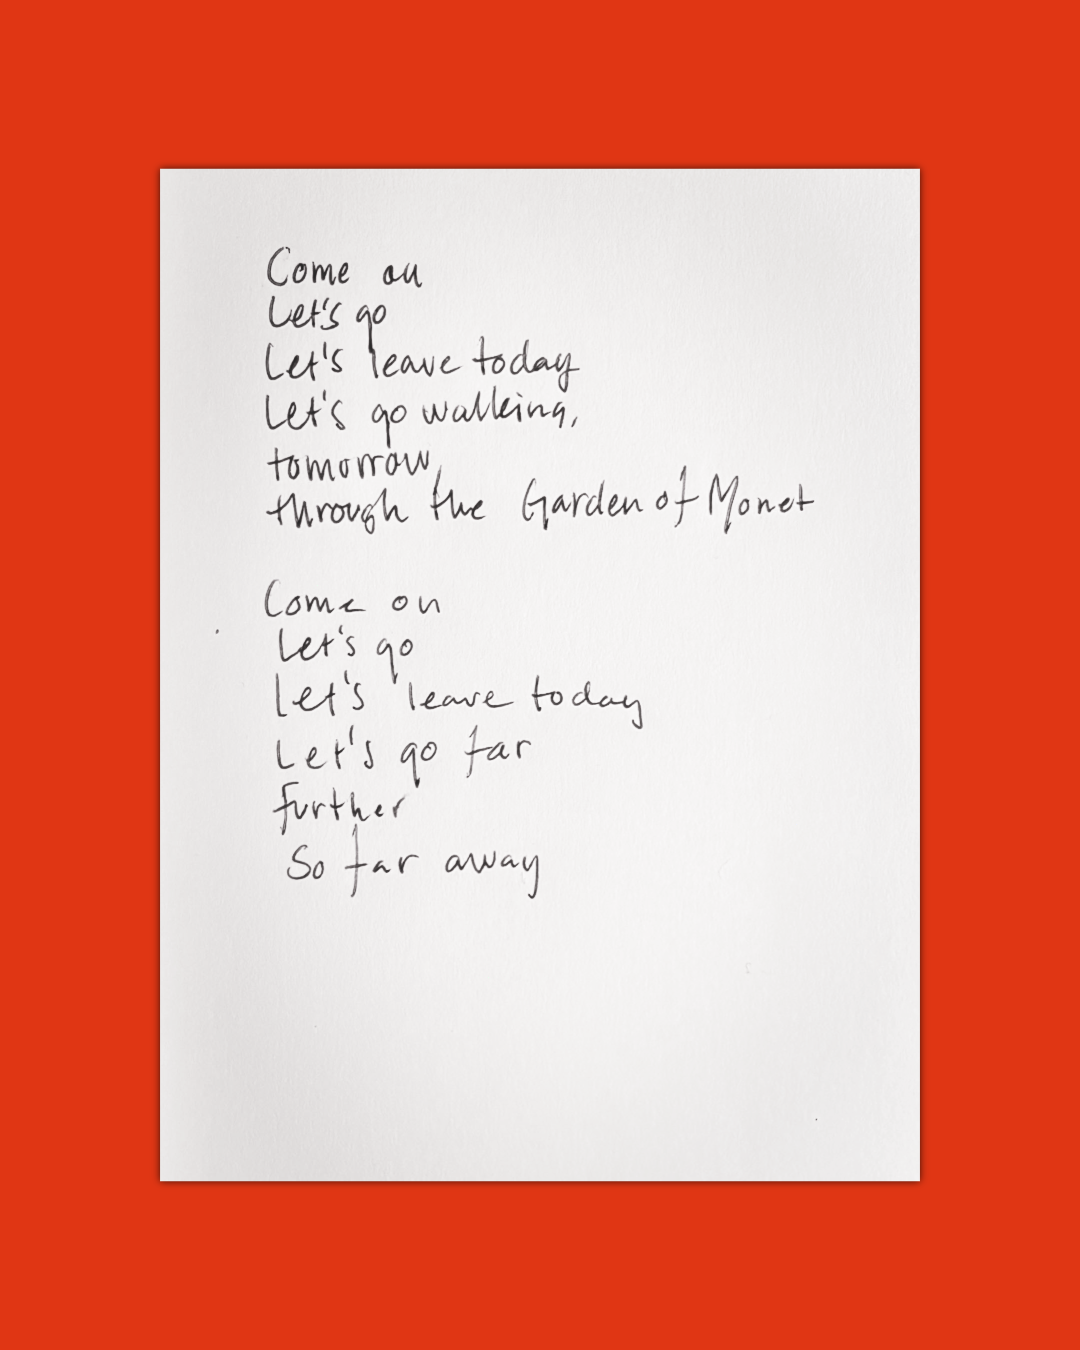 Come on
Let's go
Let's leave today
Let's go walking,
tomorrow,
through the Garden of Monet
Come on
Let's go
Let's leave today
Let's go far
further
So far away